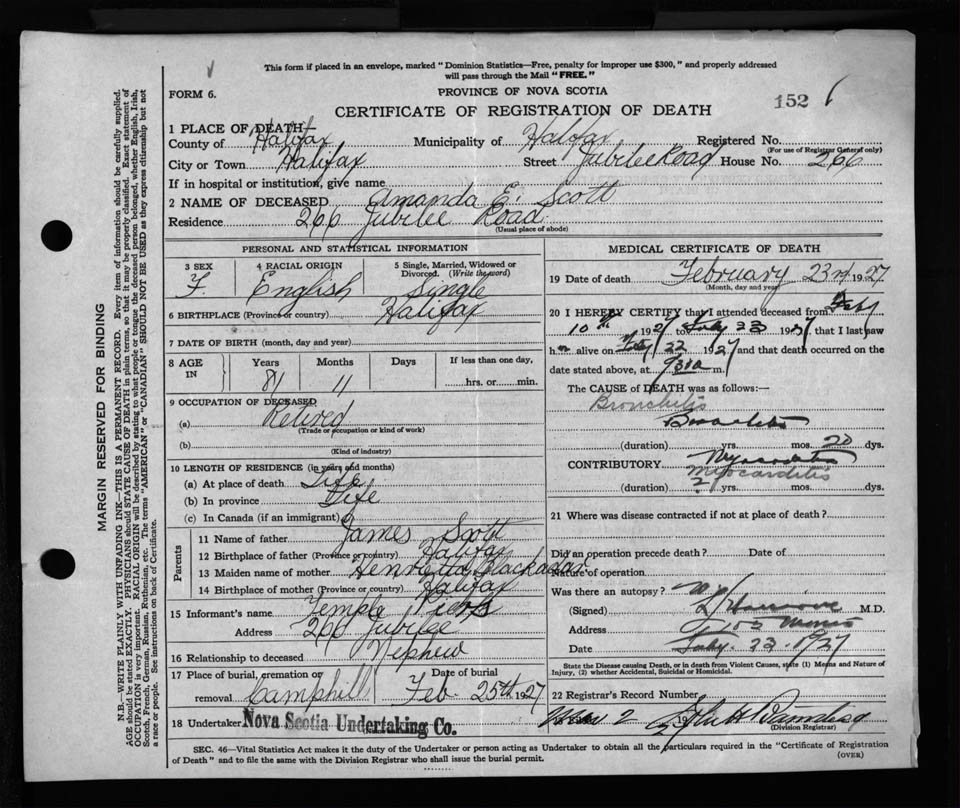 This form if placed in an envelope, marked "Dominion Statistics—Free, penalty for improper use $300," and properly addressed
will pass through the Mail "FREE."
FORM 6.
PROVINCE OF NOVA SCOTIA
152 6
CERTIFICATE OF REGISTRATION OF DEATH
1 PLACE OF DEATH—
County of Halifax Municipality of Halifax Registered No.
(For use of Registrar General only)
City or Town Halifax Street Jubilee Road House No. 266
If in hospital or institution, give name
2 NAME OF DECEASED Amanda E. Scott
Residence 266 Jubilee Road
(Usual place of abode)
PERSONAL AND STATISTICAL INFORMATION
3 SEX 4 RACIAL ORIGIN 5 Single, Married, Widowed or Divorced. (Write the word)
F. English Single
6 BIRTHPLACE (Province or country) Halifax
7 DATE OF BIRTH (month, day and year)
8 AGE IN Years Months Days If less than one day,
81 11 hrs. or min.
9 OCCUPATION OF DECEASED
(a) Retired
(Trade or occupation or kind of work)
(b)
(Kind of industry)
10 LENGTH OF RESIDENCE (in years and months)
(a) At place of death Life
(b) In province Life
(c) In Canada (if an immigrant)
Parents
11 Name of father James Scott
12 Birthplace of father (Province or country) Halifax
13 Maiden name of mother Henrietta Blackadar
14 Birthplace of mother (Province or country) Halifax
15 Informant's name Temple
Address 266 Jubilee
16 Relationship to deceased Nephew
17 Place of burial, cremation or removal Camphill Date of burial Feb. 25th 1927
18 Undertaker Nova Scotia Undertaking Co.
MEDICAL CERTIFICATE OF DEATH
19 Date of death February 23rd 1927
(Month, day and year)
20 I HEREBY CERTIFY that I attended deceased from Feby
10th 1927 to Feby 23 1927, that I last saw
h er alive on Feby 22 1927 and that death occurred on the
date stated above, at m.
The CAUSE OF DEATH was as follows:—
Bronchitis
Bronchitis
(duration) yrs. mos. 20 dys.
CONTRIBUTORY Myocarditis
Myocarditis
(duration) yrs. mos. dys.
21 Where was disease contracted if not at place of death?
Did an operation precede death? Date of
Nature of operation
Was there an autopsy? No
(Signed) M.D.
Address
Date Feby. 23. 1927
State the Disease causing Death, or in death from Violent Causes, state (1) Means and Nature of
Injury, (2) whether Accidental, Suicidal or Homicidal.
22 Registrar's Record Number
Mar 2 19
(Division Registrar)
SEC. 46—Vital Statistics Act makes it the duty of the Undertaker or person acting as Undertaker to obtain all the particulars required in the "Certificate of Registration
of Death" and to file the same with the Division Registrar who shall issue the burial permit.
(OVER)
MARGIN RESERVED FOR BINDING
N.B.—WRITE PLAINLY WITH UNFADING INK—THIS IS A PERMANENT RECORD. Every item of information should be carefully supplied.
AGE should be stated EXACTLY. PHYSICIANS should STATE CAUSE OF DEATH in plain terms, so that it may be properly classified. Exact statement of
OCCUPATION is very important. RACIAL ORIGIN will be described by stating to what people or tongue the deceased person belonged, whether English, Irish,
Scotch, French, German, Russian, Ruthenian, etc. The terms "AMERICAN" or "CANADIAN" SHOULD NOT BE USED as they express citizenship but not
a race or people. See instructions on back of Certificate.